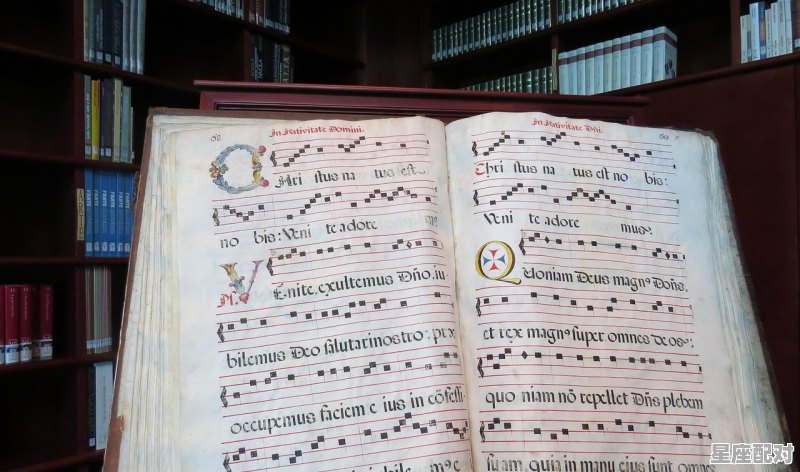 68
In Nativitate Domini.
CHri stus na tus est
no bis: Veni te adore m9.
VE nite, exultemus Dño, iu
bilemus Deo salutari nostro: præ
occupemus faciem e ius in cõfessi
In Nativitate Dñi.
Chri stus na tus est no bis:
Veni te adore mus.
Quoniam Deus magn9 Doñs,
et rex magn9 super omnes deos:
quo niam nõ repellet Dñs plebem
suam, quia in manu ejus sunt om
星座配对